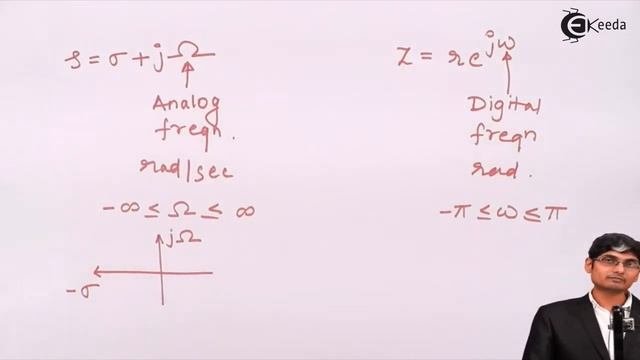 Ekeeda
s = σ + jΩ
Analog
freqn.
rad/sec
-∞ ≤ Ω ≤ ∞
jΩ
-σ
z = re^{jω}
Digital
freqn
rad.
-π ≤ ω ≤ π